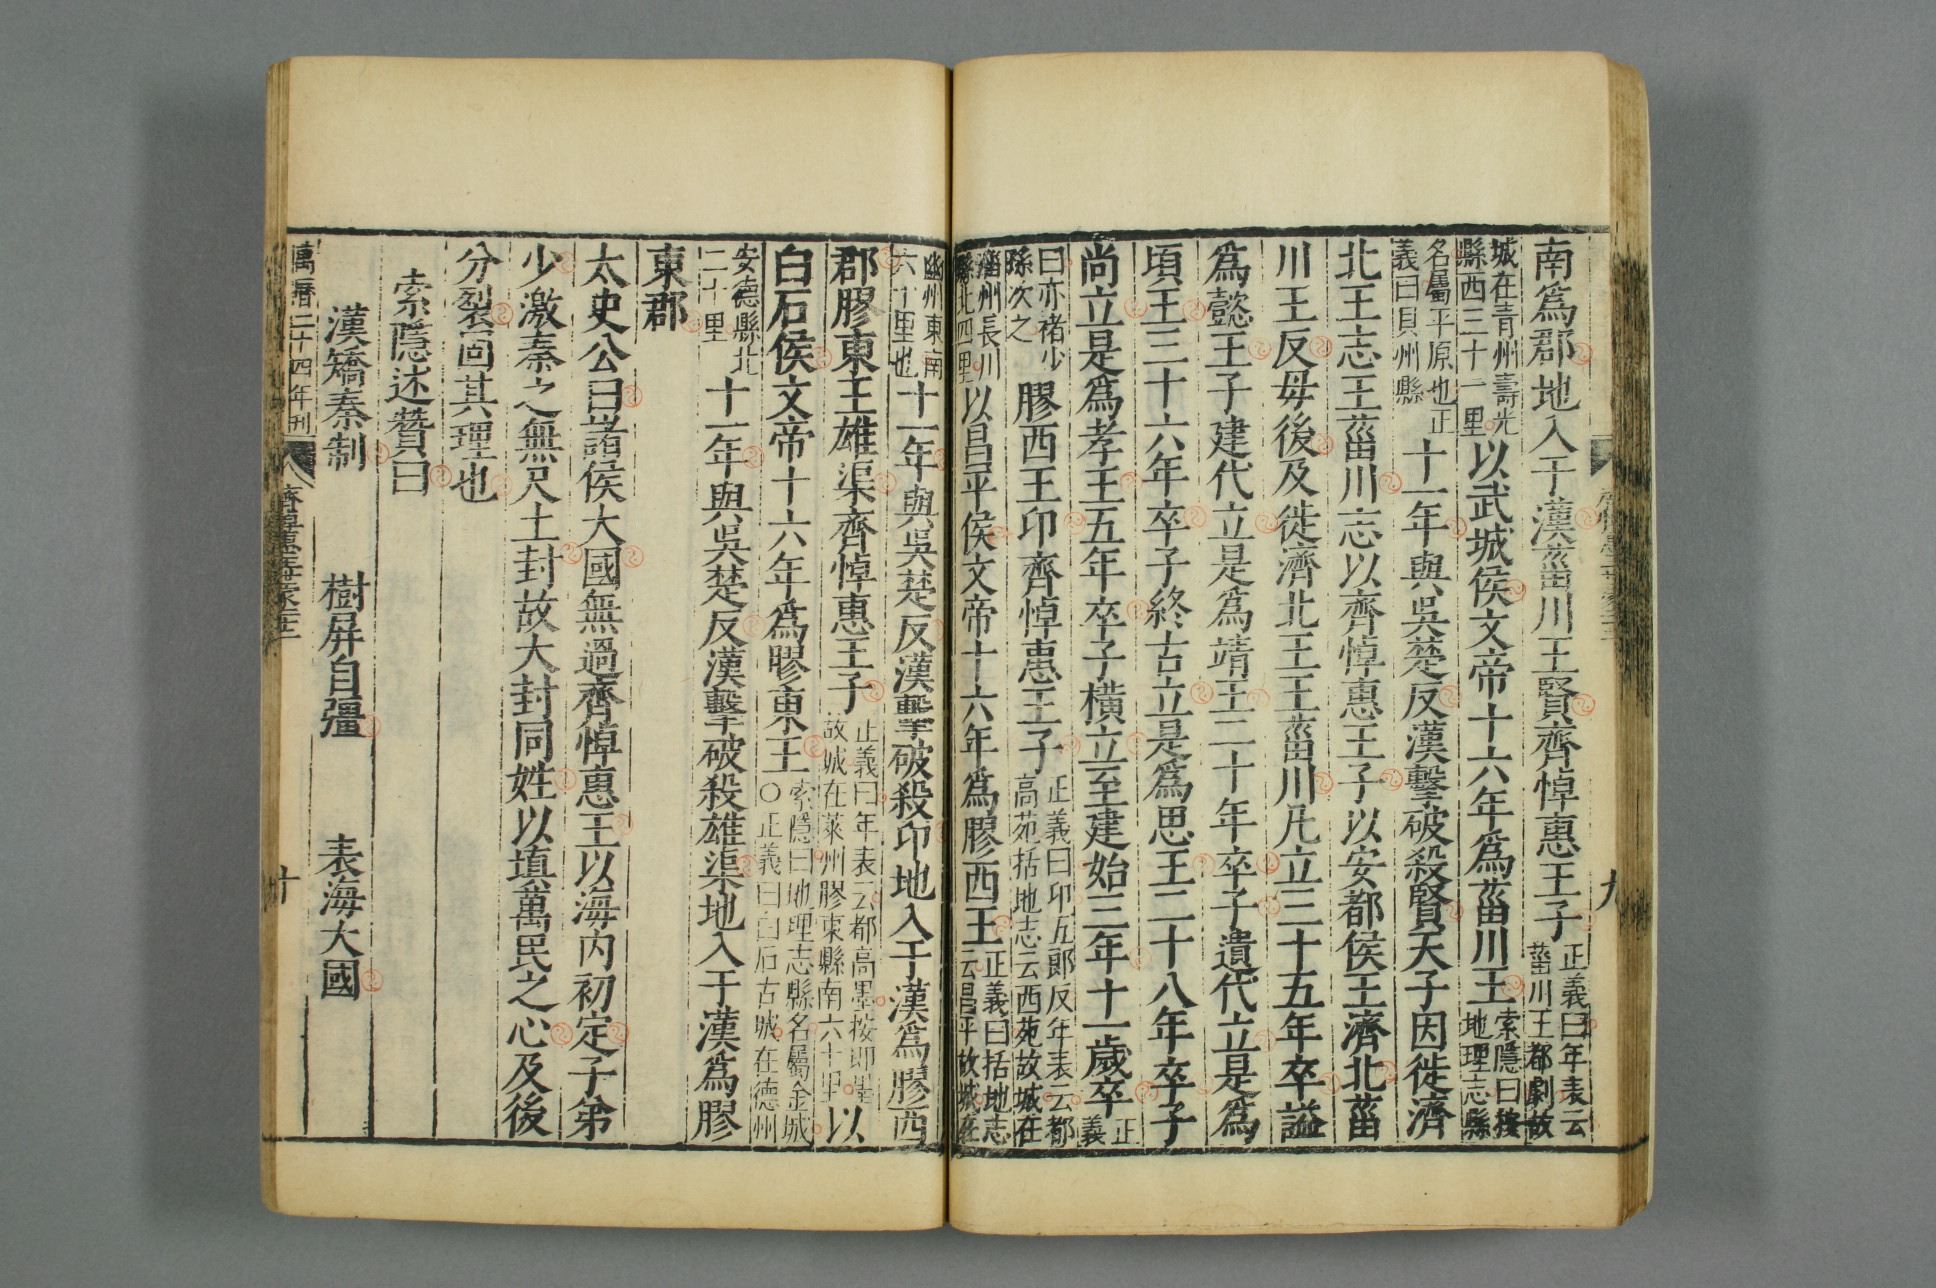 南爲郡地入于漢菑川王賢齊悼惠王子正義曰年表云菑川王都劇故
城在青州壽光縣西三十一里以武城侯文帝十六年爲菑川王索隱曰按地理志縣
名屬平原也正義曰貝州縣十一年與吳楚反漢擊破殺賢天子因徙濟
北王志王菑川志以齊悼惠王子以安都侯王濟北菑
川王反毋後及徙濟北王王菑川凡立三十五年卒謚
爲懿王子建代立是爲靖王二十年卒子遺代立是爲
頃王三十六年卒子終古立是爲思王二十八年卒子
尚立是爲孝王五年卒子橫立至建始三年十一歲卒正義
曰亦褚少孫次之膠西王卬齊悼惠王子正義曰卬五郎反年表云都高苑括地志云西苑故城在
淄州長川縣北四里以昌平侯文帝十六年爲膠西王正義曰括地志云昌平故城在
幽州東南六十里也十一年與吳楚反漢擊破殺卬地入于漢爲膠西
郡膠東王雄渠齊悼惠王子正義曰年表云都高墨按即墨故城在萊州膠東縣南六十里以
白石侯文帝十六年爲膠東王索隱曰地理志縣名屬金城〇正義曰白石古城在德州
安德縣北二十里十一年與吳楚反漢擊破殺雄渠地入于漢爲膠
東郡
太史公曰諸侯大國無過齊悼惠王以海內初定子弟
少激秦之無尺土封故大封同姓以填萬民之心及後
分裂固其理也
索隱述贊曰
漢矯秦制 樹屏自彊 表海大國
萬曆二十四年刊 齊悼惠世家二十二 十
九